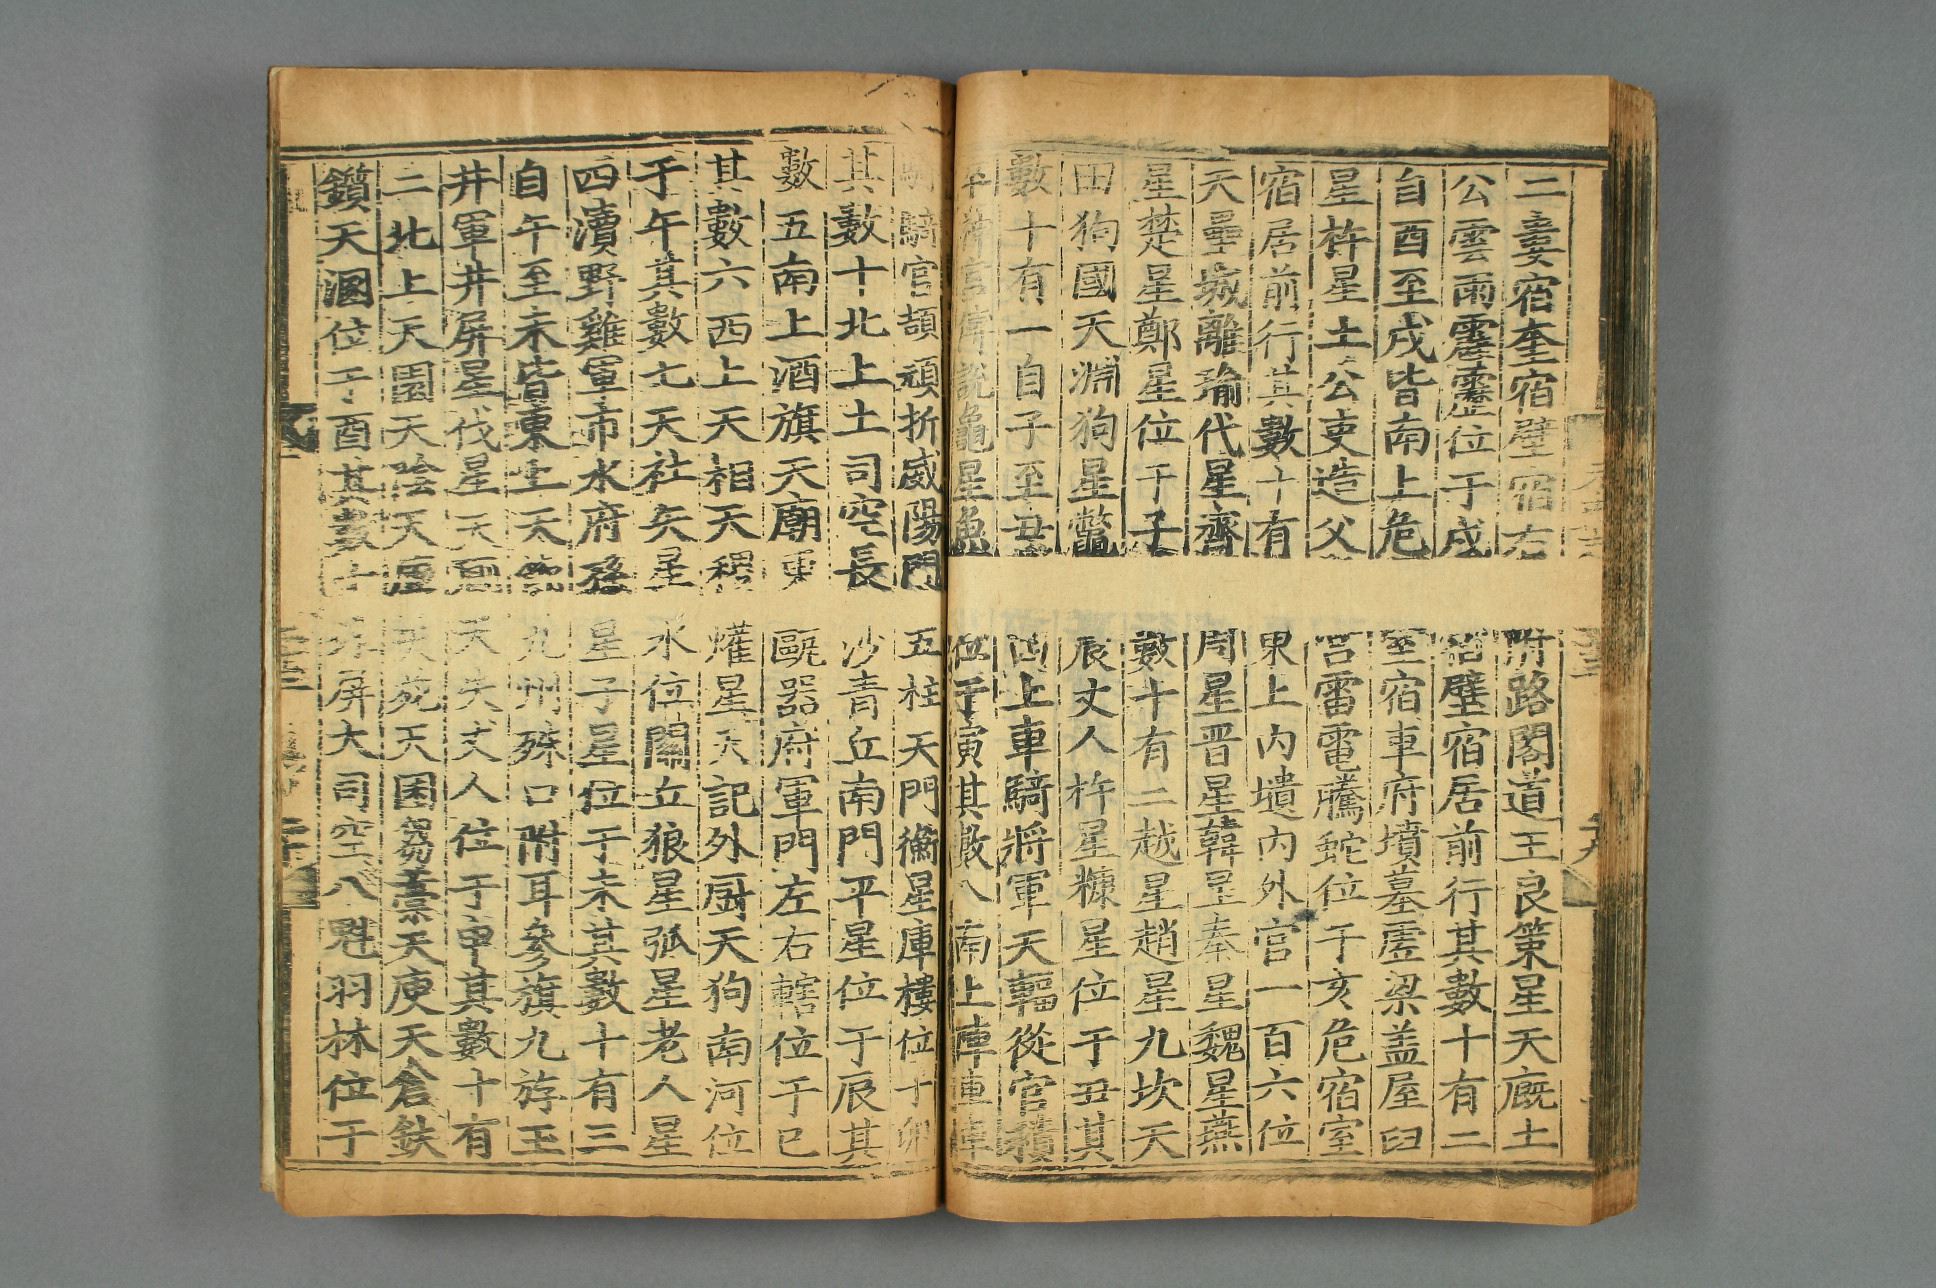 二婁宿奎宿壁宿右附路閣道王良策星天廐土
公雲雨霹靂位于戌宿壁宿居前行其數十有二
自酉至戌皆南上危室宿車府墳墓虛梁盖屋臼
星杵星土公吏造父宮雷電騰蛇位于亥危宿室
宿居前行其數十有東上內壝內外官一百六位
天壘城離瑜代星齊周星晉星韓星秦星魏星燕
星楚星鄭星位于子數十有二越星趙星九坎天
田狗國天淵狗星鱉辰丈人杵星糠星位于丑其
數十有一自子至丑西上車騎將軍天輻從官積
卒神宮傅說龜星魚位于寅其數八南上陣車車
騎官頡頑折威陽門五柱天門衡星庫樓位于卯
其數十北上土司空長沙青丘南門平星位于辰其
數五南上酒旗天廟東甌器府軍門左右轄位于巳
其數六西上天相天稷爟星天記外厨天狗南河位
于午其數七天社矢星水位闕丘狼星弧星老人星
四瀆野雞軍市水府孫星子星位于未其數十有三
自午至未皆東上天節九州殊口附耳參旗九斿玉
井軍井屏星伐星天厠天矢丈人位于申其數十有
二北上天園天陰天廩天苑天囷芻藁天庾天倉鈇
鑕天溷位于酉其數十外屏大司空八魁羽林位于